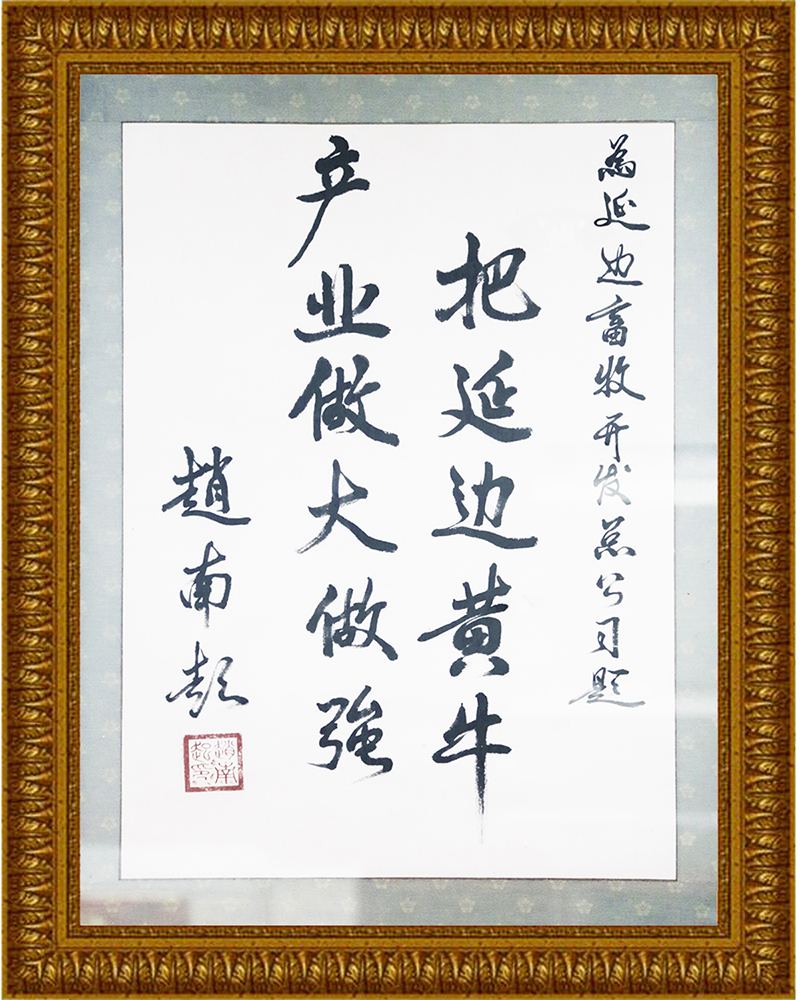 為延边畜牧开发总公司题
把延边黄牛
产业做大做強
趙南起
趙南起印